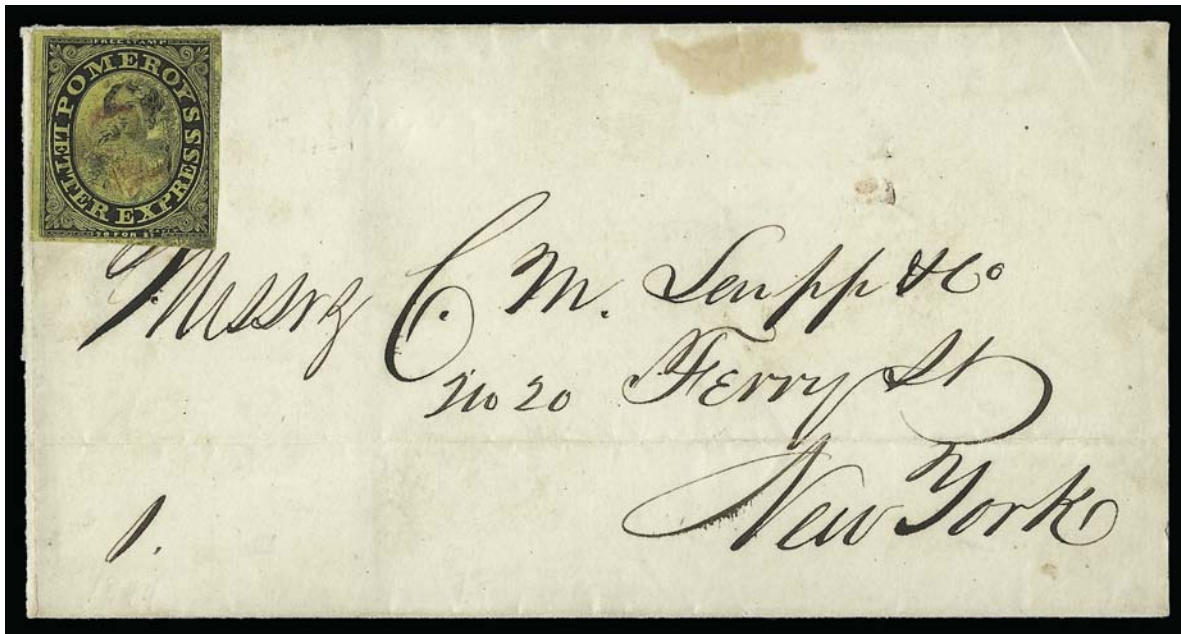 FREE STAMP
POMEROY'S
LETTER EXPRESS.
20 FOR $1.
Messrs C. M. Leupp & Co
No 20 Ferry St
New York
1.